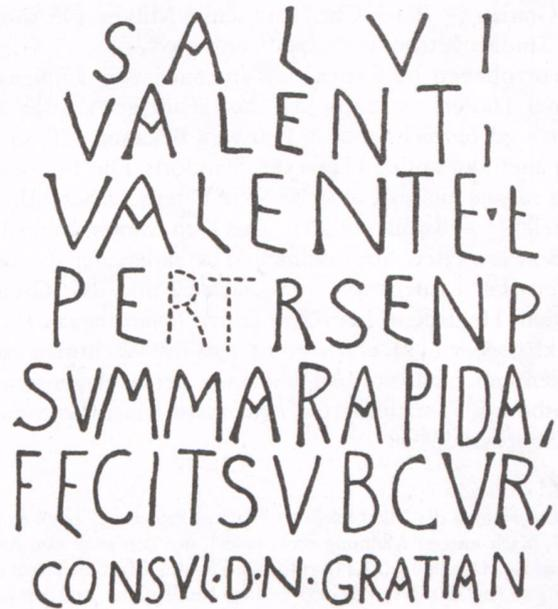 SALVI
VALENT
VALENTE·E
PERTRSENP
SVMMARAPIDA,
FECITSVBCVR,
CONSVL·D·N·GRATIAN